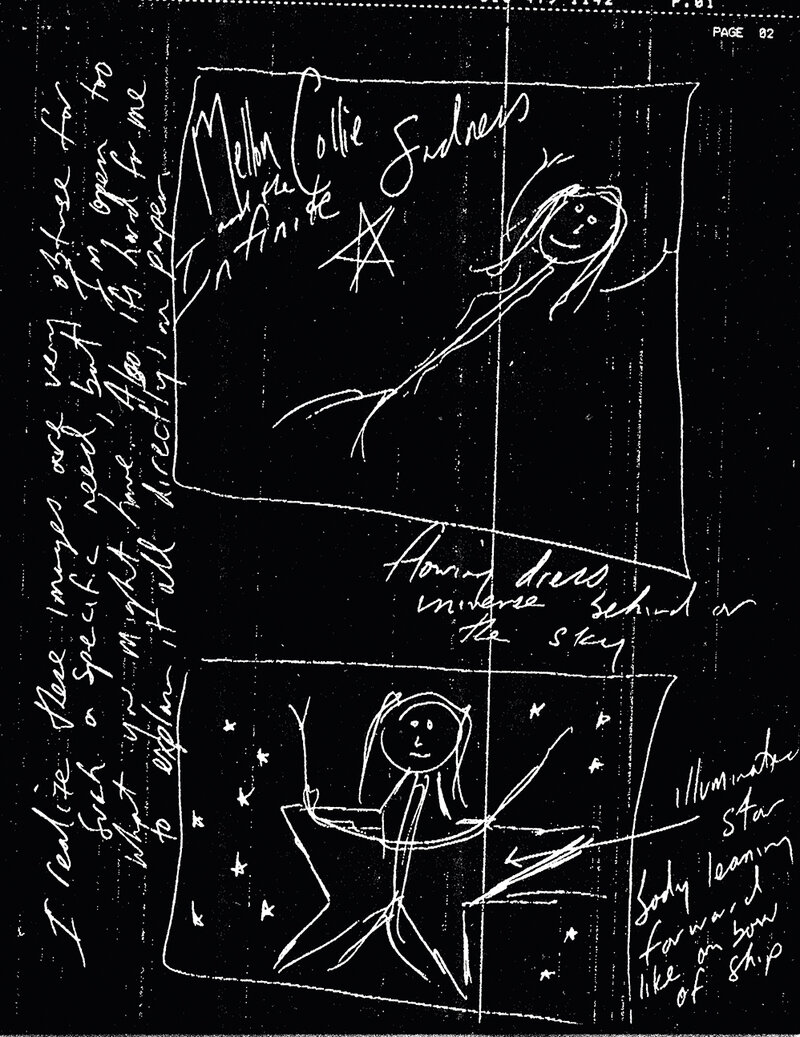 P.01
PAGE 02
Mellon Collie Sadness
and the
Infinite
flowing dress
universe behind or
the sky
illuminated
star
body leaning
forward
like on bow
of ship
I realize these images are very obtuse for
such a specific need, but I'm open to
what you might have. Also it's hard for me
to explain it all directly on paper.